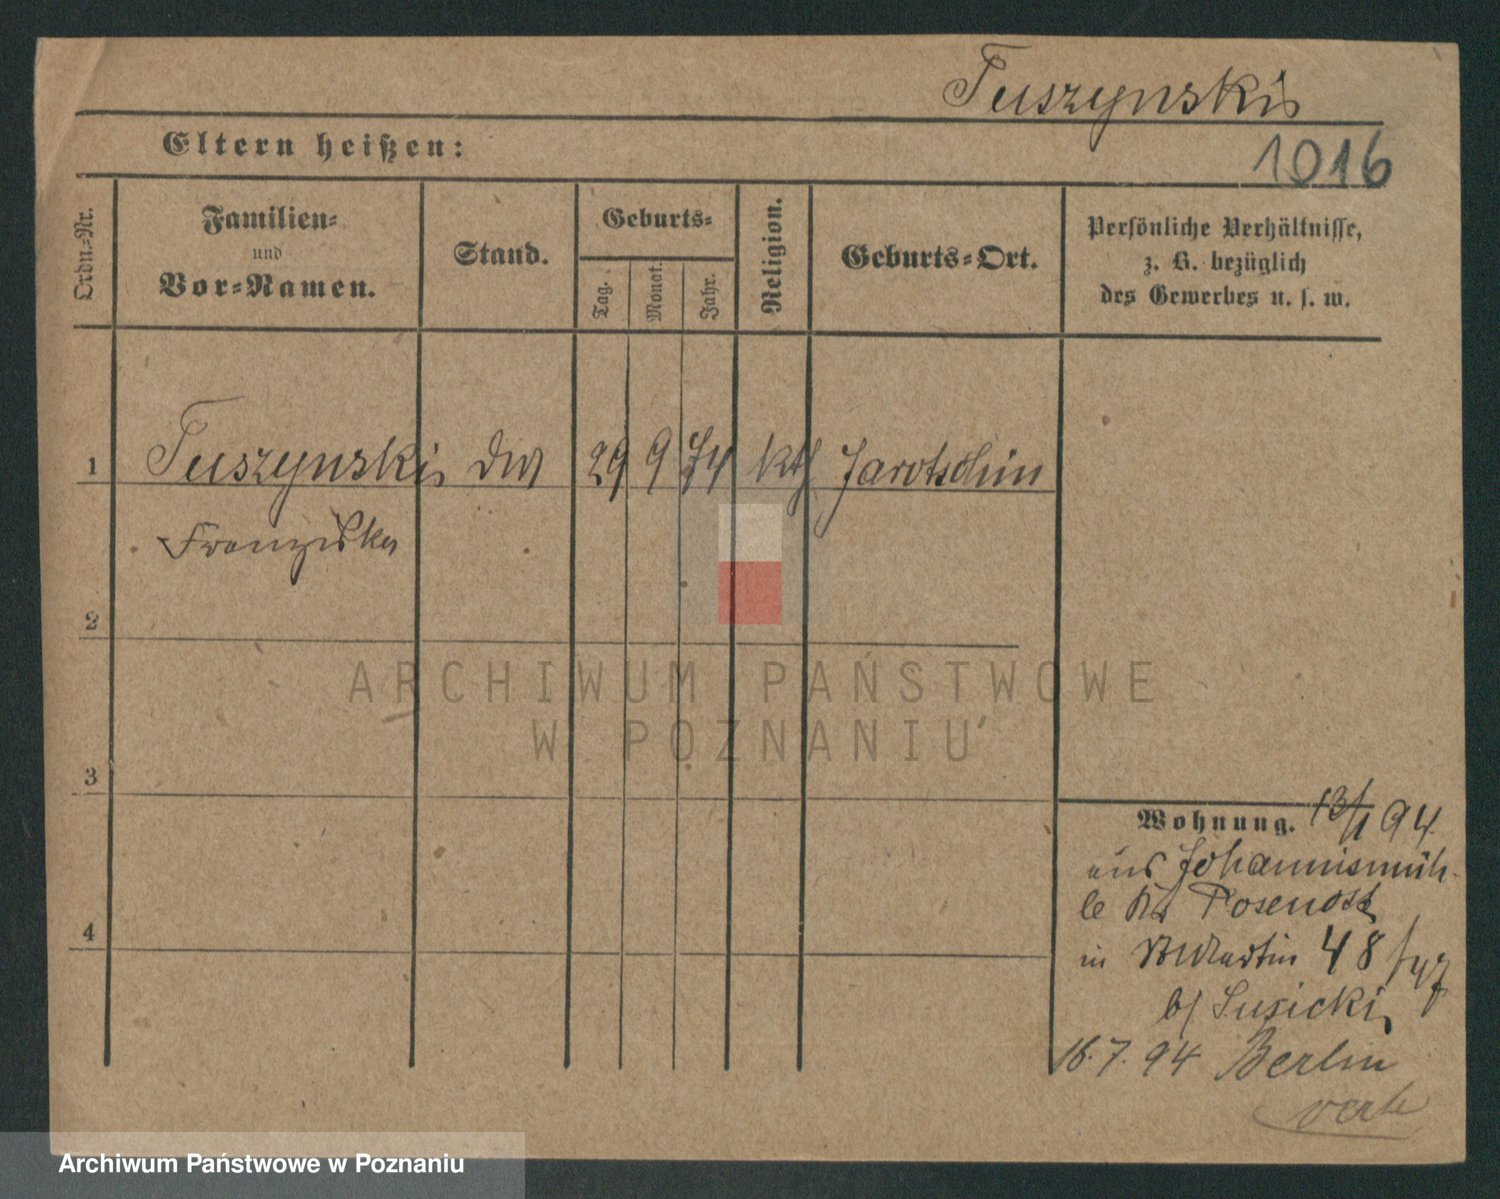 Tuszynski
Eltern heißen:
1016
Ordn.-Nr.
Familien-
und
Vor-Namen.
Stand.
Geburts-
Tag.
Monat.
Jahr.
Religion.
Geburts-Ort.
Persönliche Verhältnisse,
z. B. bezüglich
des Gewerbes u. s. w.
1 Tuszynski 29 9 74 kth Jarotschin
Franziska
2
3
4
ARCHIWUM PAŃSTWOWE
W POZNANIU
Wohnung. 13/1 94
aus Johannismüh-
le Krs Posenost
in St Martin 48/47
b/ Susicki
16.7.94 Berlin
Archiwum Państwowe w Poznaniu